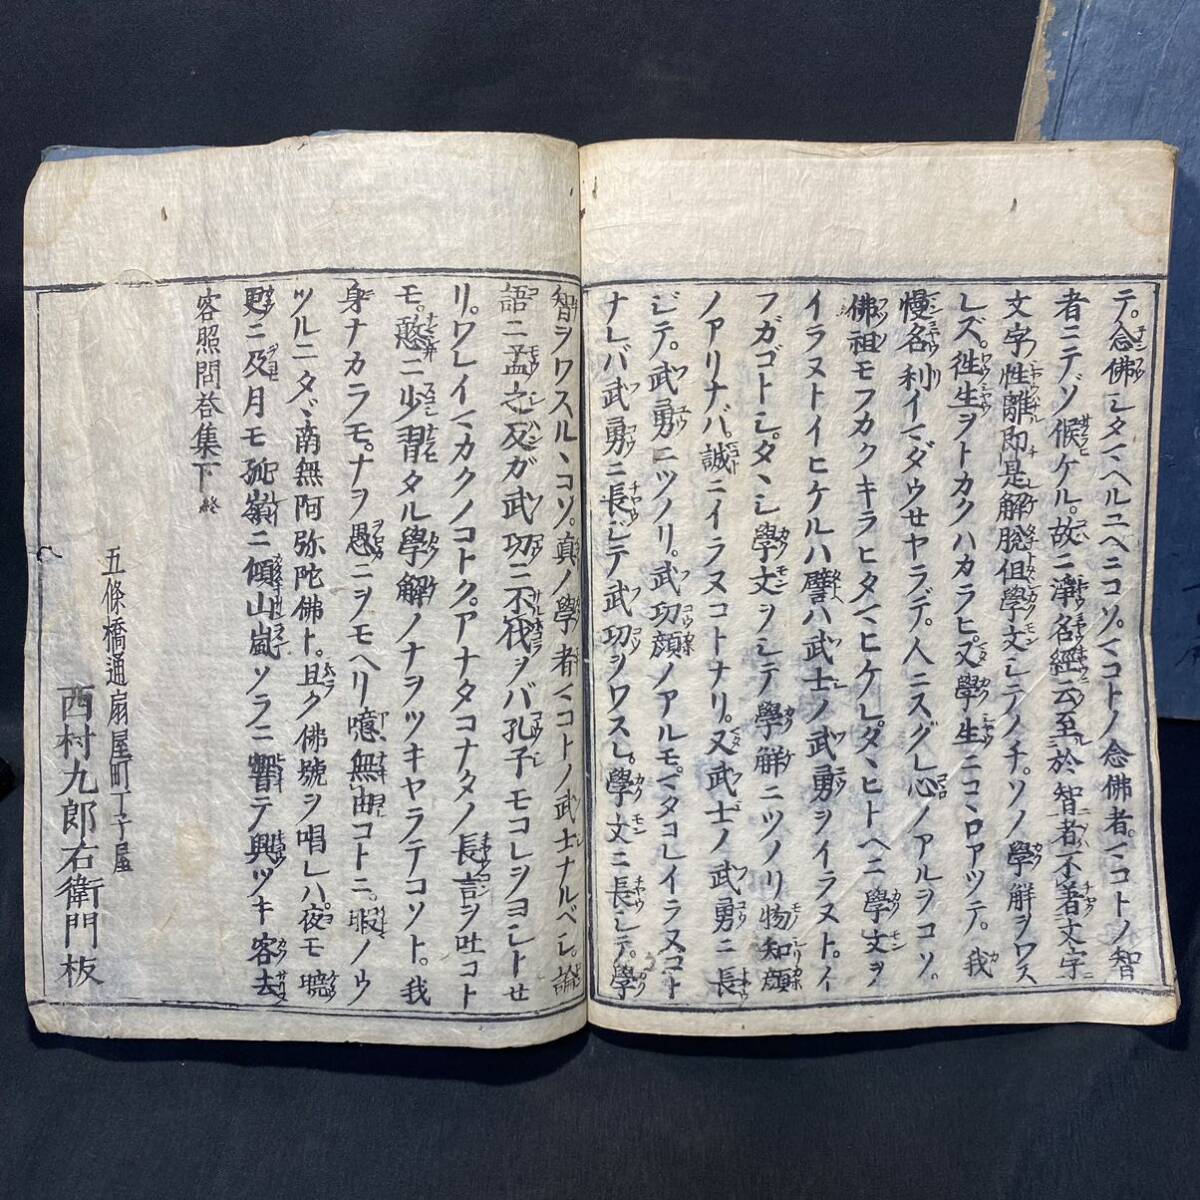 テ。念佛シタマヘルユヘニコソ。マコトノ念佛者。マコトノ智
者ニテゾ候ケル。故ニ淨名經云至於智者不著文字
文字性離即是解脱但學文シテノチ。ソノ學解ヲワス
レズ。徃生ヲトカクハカラヒ。又學生ニコヽロアツテ。我
慢名利イマダウせヤラデ。人ニスグレ心ノアルヲコソ。
佛祖モフカクキラヒタマヒケレ。タヾヒトヘニ學文ヲ
イラヌトイヒケルハ譬ハ武士ノ武勇ヲイラヌト。イ
フガゴトシ。タヾシ學文ヲシテ學解ニツノリ物知顔
ノアリナバ。誠ニイラヌコトナリ。又武士ノ武勇ニ長
ジテ。武勇ニツノリ。武功顔ノアルモ。マタコレイラヌコト
ナレバ武勇ニ長ジテ武功ヲワスレ。學文ニ長シテ。學
智ヲワスルヽコソ。真ノ學者マコトノ武士ナルベシ。論
語ニ孟之反ガ武功ニ不伐ヲバ孔子モコレヲヨシトせ
リ。ワレイマカクノコトク。アナタコナタノ長言ヲ吐コト
モ。憖ニ少習タル學解ノナヲツキヤラテコソト。我
身ナカラモ。ナヲ愚ニヲモヘリ噫無由コトニ。暇ノウ
ツルニタヾ南無阿弥陀佛ト。且ク佛號ヲ唱レハ夜モ暁
更ニ及月モ孤嶺ニ傾山嵐ソラニ響テ興ツキ客去
客照問答集下 終
五條橋通扇屋町丁子屋
西村九郎右衛門板